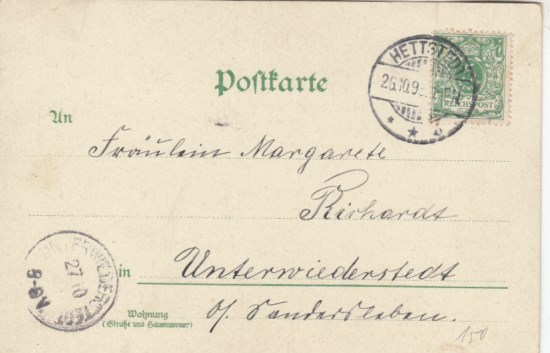 HETTSTEDT
26.10.9
REICHSPOST
Postkarte
An
Fräulein Margarete
Richardt
in Unterwiederstedt
b/ Sandersleben.
Wohnung
(Straße und Hausnummer)
UNTERWIEDERSTEDT
27 10
8-9
150